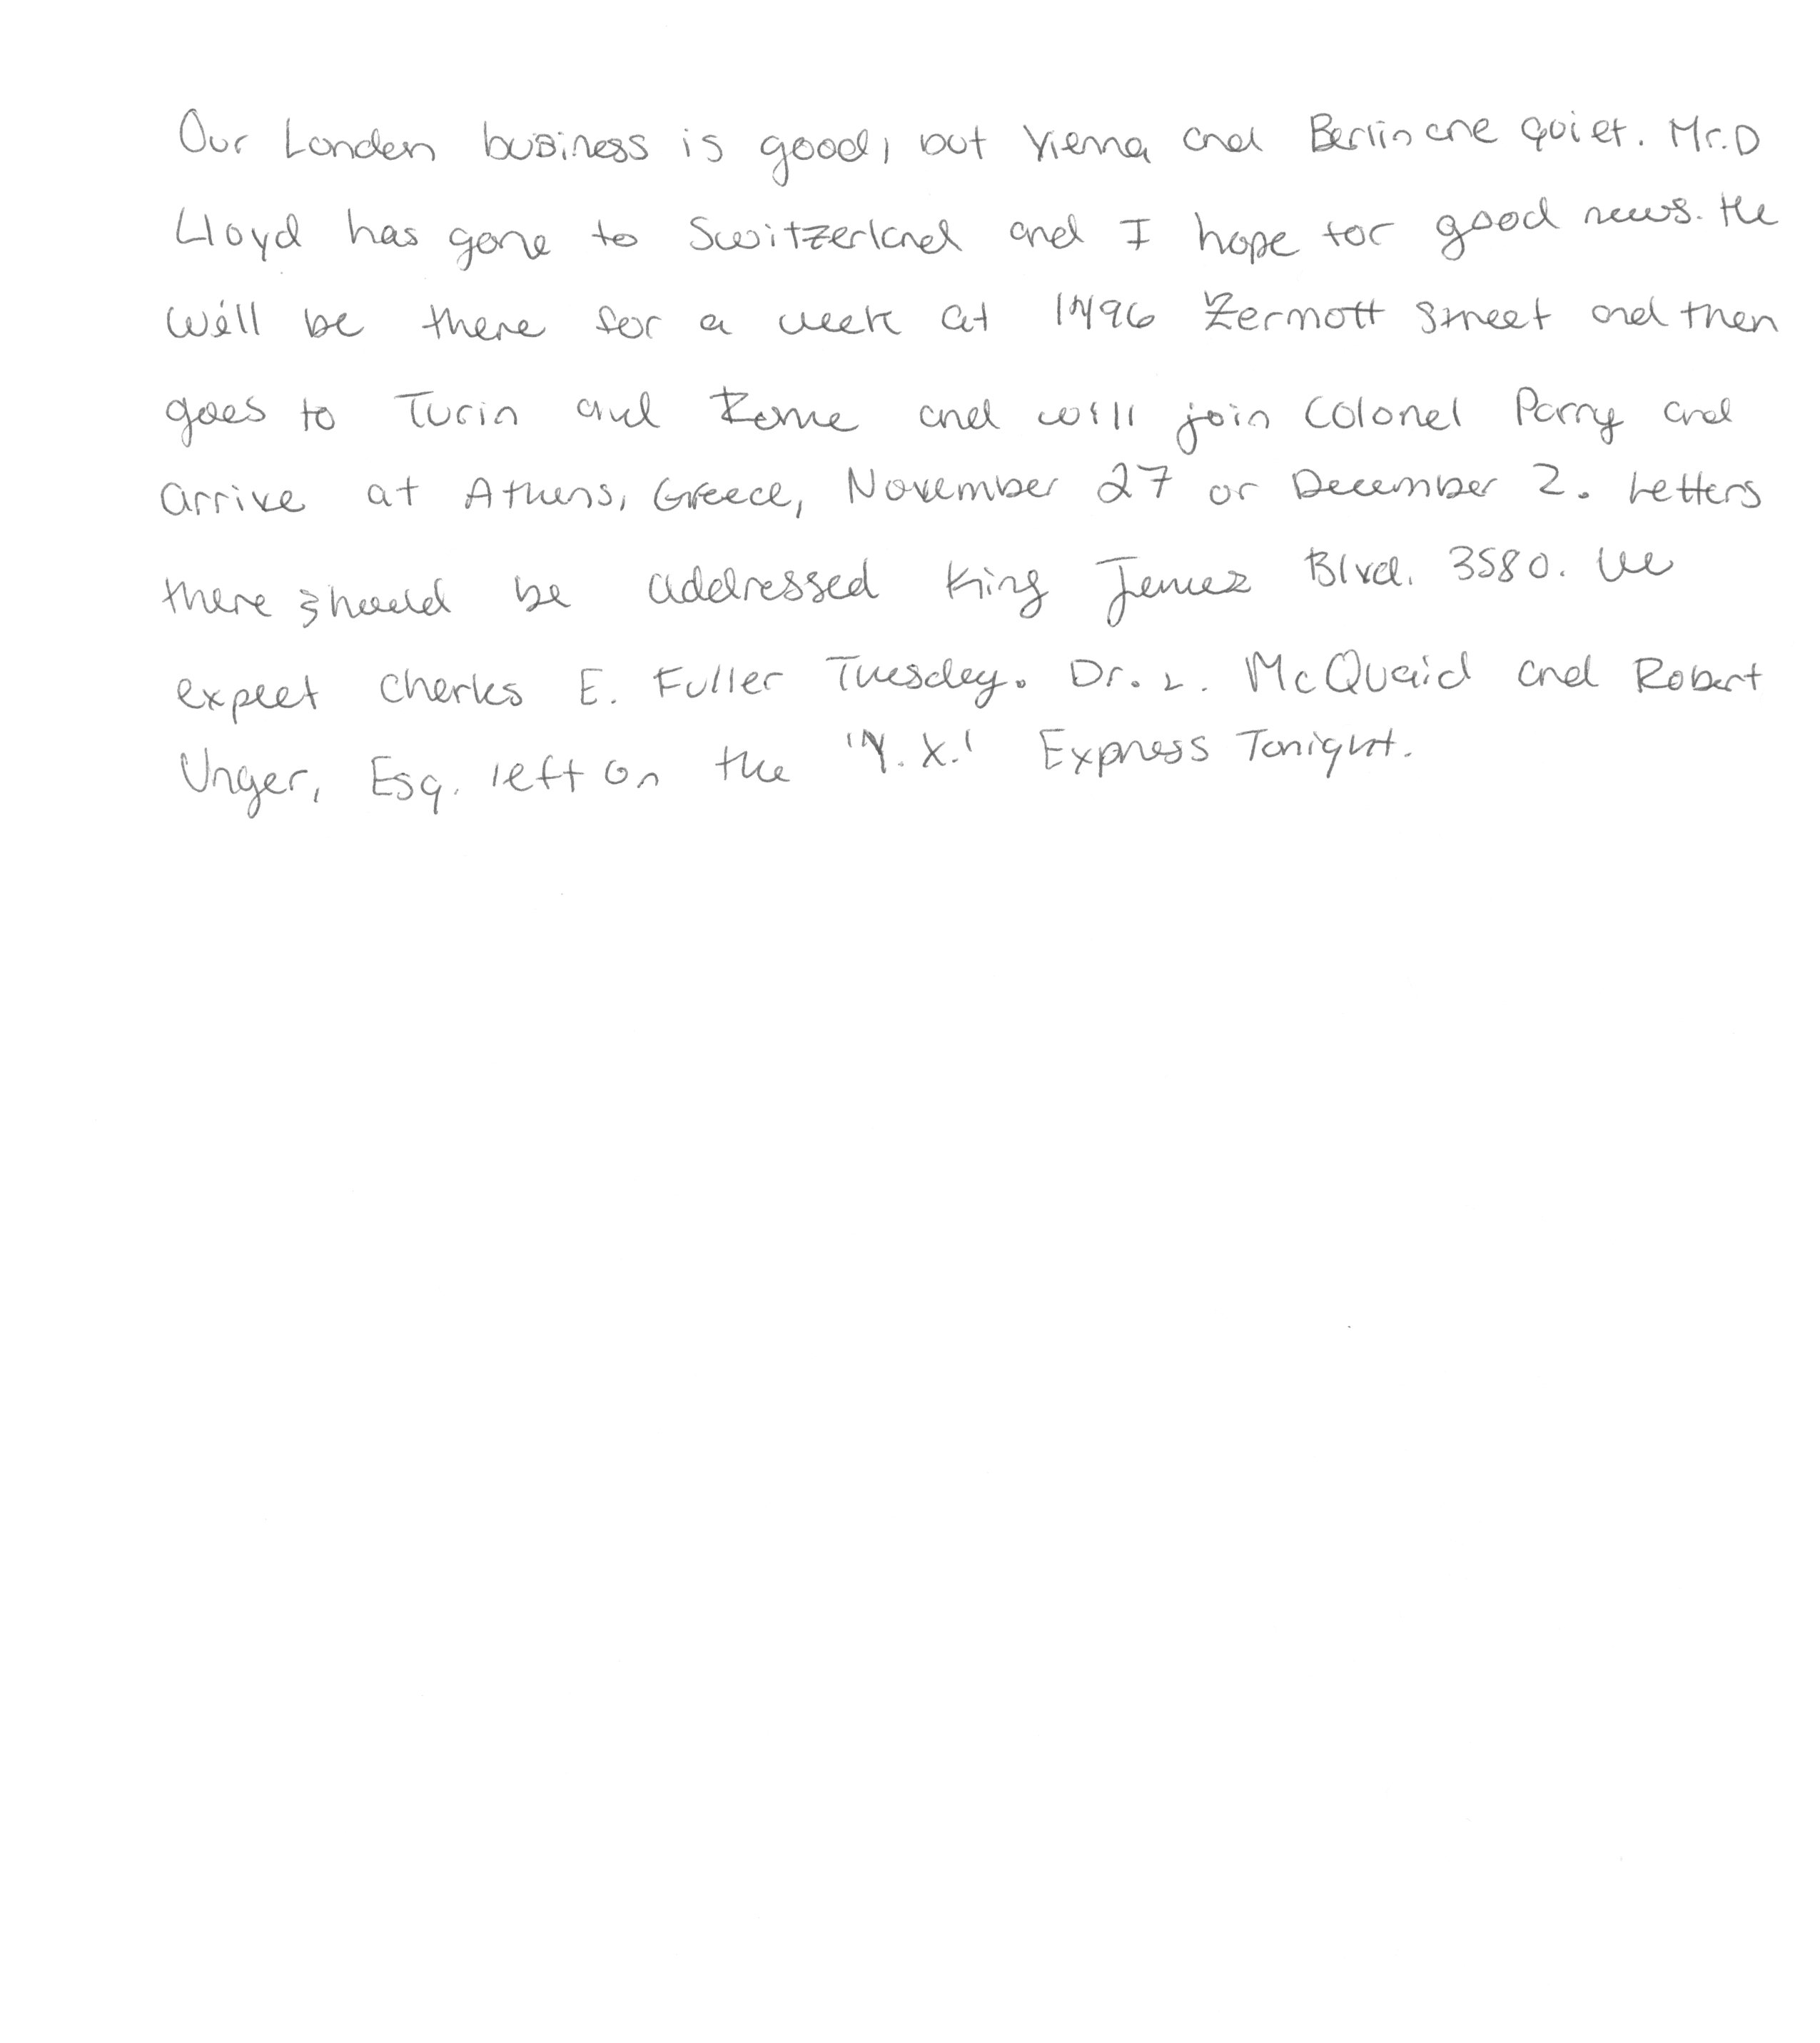 Our London business is good, but Vienna and Berlin are quiet. Mr. D
Lloyd has gone to Switzerland and I hope for good news. He
will be there for a week at 1496 Zermott Street and then
goes to Turin and Rome and will join Colonel Parry and
arrive at Athens, Greece, November 27 or December 2. Letters
there should be addressed King James Blvd. 3580. We
expect Charles E. Fuller Tuesday. Dr. L. McQuaid and Robert
Unger, Esq. left on the 'Y.X.' Express Tonight.